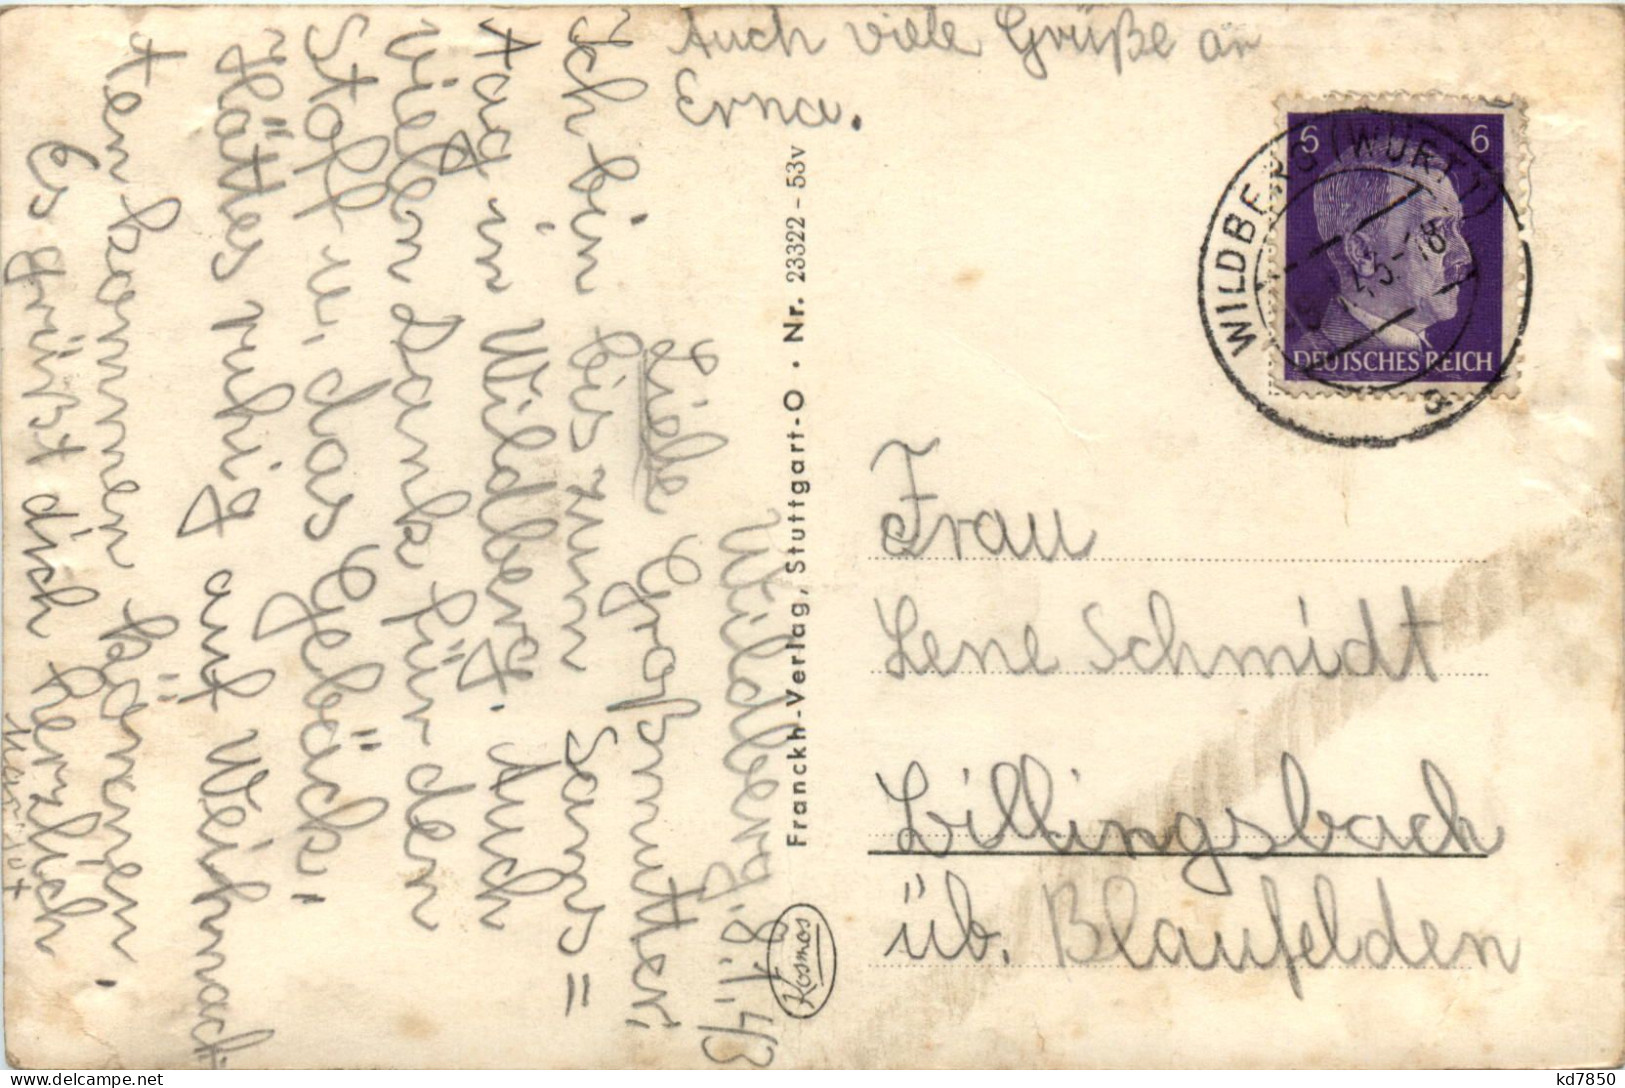 Auch viele Grüße an
Erna.
Wildberg. 8.1.43
Liebe Großmutter!
Ich bin bis zum Sams=
tag in Wildberg. Auch
vielen Dank für den
Stoff u. das Gebäck.
Hättes ruhig auf Weihnach
ten kommen können.
Es grüßt dich herzlich
Franckh-Verlag, Stuttgart-O • Nr. 23322 - 53v
Kosmos
6 6
DEUTSCHES REICH
WILDBERG (WÜRTT)
43-18
a
Frau
Lene Schmidt
Billingsbach
üb. Blaufelden
kd7850